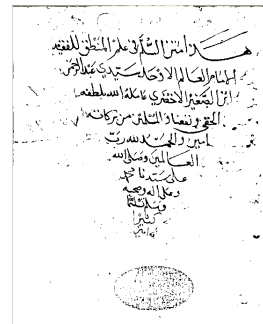 هذا متن السلم في علم المنطق للفقيه
الإمام العالم الاوحد سيدي عبد الرحمن
ابن الصغير الاخضري عامله الله بلطفه
الخفي ونفعنا والمسلمين من بركاته
امين والحمد لله رب
العالمين وصلى الله
على سيدنا محمد
وعلى اله وصحبه
وسلم تسليما
كثيرا